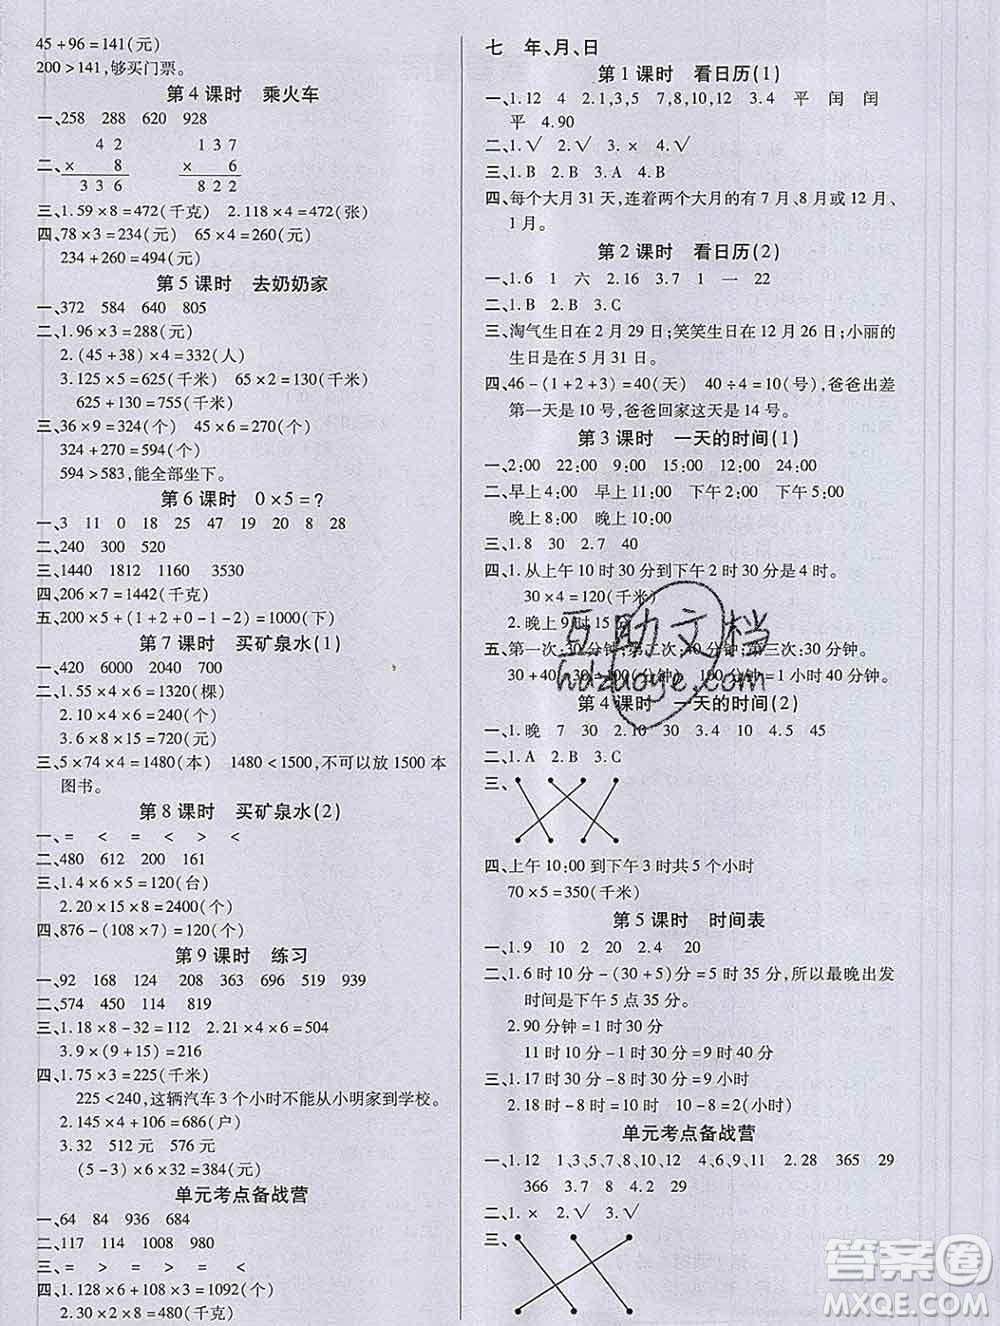 45+96=141(元)
200>141,够买门票。
第4课时 乘火车
一、258 288 620 928
二、
4 2
× 8
3 3 6
1 3 7
× 6
8 2 2
三、1.59×8=472(千克) 2.118×4=472(张)
四、78×3=234(元) 65×4=260(元)
234+260=494(元)
第5课时 去奶奶家
一、372 584 640 805
二、1.96×3=288(元)
2.(45+38)×4=332(人)
3.125×5=625(千米) 65×2=130(千米)
625+130=755(千米)
三、36×9=324(个) 45×6=270(个)
324+270=594(个)
594>583,能全部坐下。
第6课时 0×5=?
一、3 11 0 18 25 47 19 20 8 28
二、240 300 520
三、1440 1812 1160 3530
四、206×7=1442(千克)
五、200×5+(1+2+0-1-2)=1000(下)
第7课时 买矿泉水(1)
一、420 6000 2040 700
二、1.55×4×6=1320(棵)
2.10×4×2=80(个)
3.6×8×15=720(元)
三、5×74×4=1480(本) 1480<1500,不可以放1500本
图书。
第8课时 买矿泉水(2)
一、= < = < > <
二、480 612 200 161
三、1.4×6×5=120(台)
2.20×15×8=2400(个)
四、876-(108×7)=120(个)
第9课时 练习
一、92 168 124 208 119 148 939
二、574 450 114 819
三、1.18×8-32=112 2.21×4×6=504
3.9×(9+15)=216
四、1.75×3=225(千米)
225<240,这辆汽车3个小时不能从小明家到学校。
2.145×4+106=686(户)
3.32 512元 576元
(5-3)×6×32=384(元)
单元考点备战营
一、64 84 936 684
二、117 114 1008 980
三、= > = > = <
四、1.128×6+108×3=1092(个)
2.30×2×8=480(千克)
七 年、月、日
第1课时 看日历(1)
一、1.12 4 2.1,3,5 7,8,10,12 3.4 平 闰 闰
平 4.90
二、1.√ 2.√ 3.× 4.√
三、1.B 2.B 3.A 4.B
四、每个大月31天,连着两个大月的有7、8月或12月、
1月。
第2课时 看日历(2)
一、1.6 1 六 2.16 3.7 1 一 22
二、1.B 2.B 3.C
三、淘气生日在2月29日;笑笑生日在12月26日;小丽的
生日是在5月31日。
四、46-(1+2+3)=40(天) 40÷4=10(号),爸爸出差
第一天是10号,爸爸回家这天是14号。
第3课时 一天的时间(1)
一、2:00 22:00 9:00 15:00 12:00 24:00
二、早上4:00 早上11:00 下午2:00 下午5:00
晚上8:00 晚上10:00
三、1.8 30 2.7 40
四、1.从上午10时30分到下午2时30分是4时。
30×4=120(千米)
2.晚上9时15分
五、第一次:30分钟;第二次:40分钟;第三次:30分钟。
30+40+30=100(分钟) 100分钟=1小时40分钟。
互助文档
hdzuoye.com
第4课时 一天的时间(2)
一、1.晚 7 30 2.10 30 3.4 10 5 45
二、1.A 2.B 3.C
三、
四、上午10:00到下午3时共5个小时
70×5=350(千米)
第5课时 时间表
一、1.9 10 2 20 2.4 20
二、1.6时10分-(30+5)分=5时35分,所以最晚出发
时间是下午5点35分。
2.90分钟=1时30分
11时10分-1时30分=9时40分
三、1.17时30分-8时30分=9小时
2.18时-8时=10(时) 10-8=2(小时)
单元考点备战营
一、1.12 1,3,5,7,8,10,12 4,6,9,11 2.28 365 29
366 3.7 8 30 5 4.52 29
二、1.× 2.√ 3.√
三、
答案圈
MXQE.COM